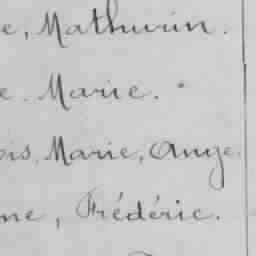 e, Mathurin.
e Marie.
ois, Marie, Ange.
ne, Frédéric.